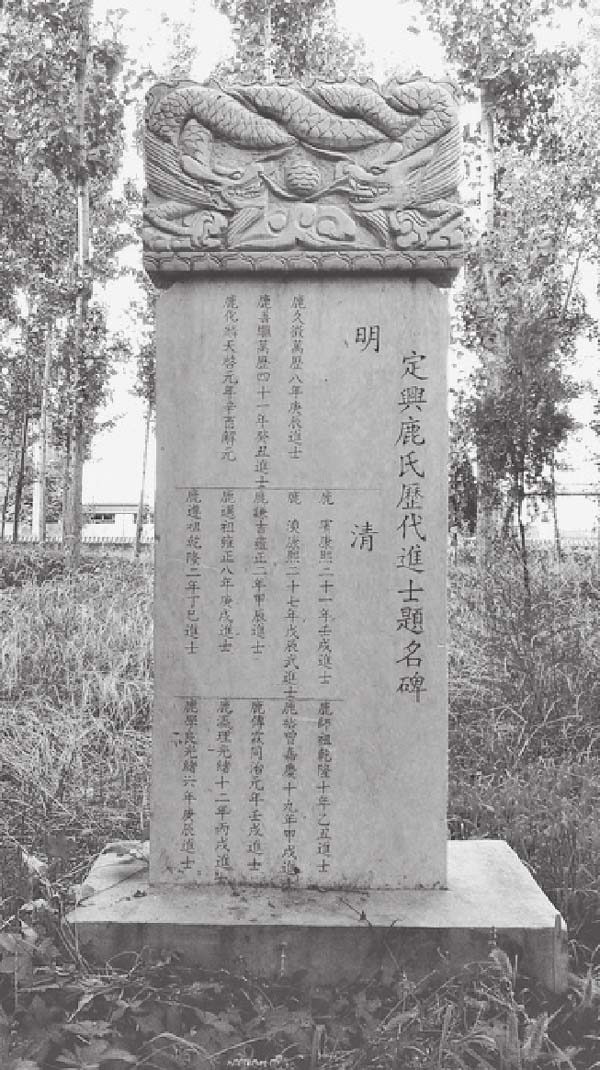 定興鹿氏歷代進士題名碑
明
鹿久徵萬曆八年庚辰進士
鹿善繼萬曆四十一年癸丑進士
鹿化麟天啓元年辛酉解元
清
鹿賓康熙二十一年壬戌進士
鹿康熙二十七年戊辰武進士
鹿謙吉雍正二年甲辰進士
鹿邁祖雍正八年庚戌進士
鹿遵祖乾隆二年丁巳進士
鹿師祖乾隆十年乙丑進士
鹿嘉慶十九年甲戌進士
鹿傳霖同治元年壬戌進士
鹿瀛理光緒十二年丙戌進士
鹿學良光緒六年庚辰進士